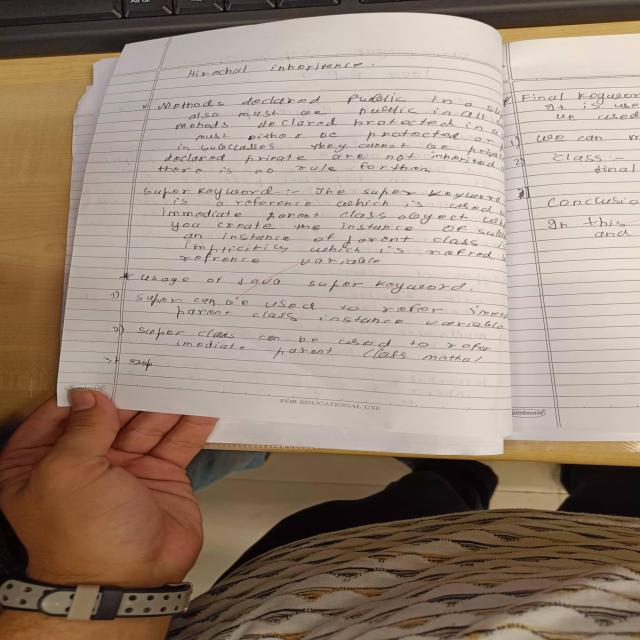 Hirachal inheritance.
* Methods declared Public in a su
also must be public in all
Mehods declared protected in a
must either be protected or
in subclasses they cannot be priva
declared private are not inherited
there is no rule for them
super keyword :- The super keyword
is reference which is used
immediate parent class object
you create the instance of sub
an instance of parent class is
implicitily which is refred
refrence variable
* usage of Java super keyword.
1) super can be used to refer imme
parent class instance variable
2) super class can be used to refer
imediate parent class method
3)
FOR EDUCATIONAL USE
Sundaram
Final Keywor
It is use
we used
1) we can m
2) class :-
final
* Conclusio
In this
and
Sundaram